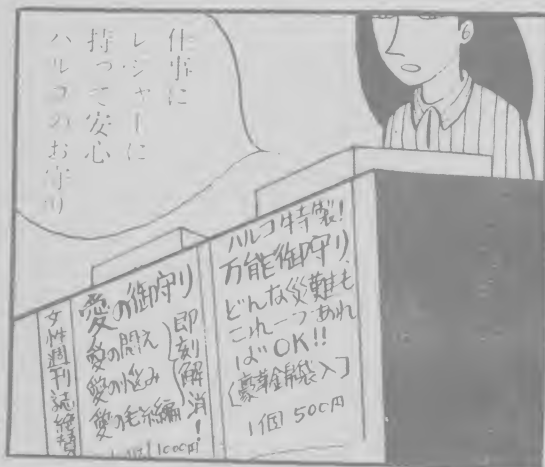 仕事に
レジャーに
持って安心
ハルコのお守り
ハルコ特製!
万能御守り
どんな災難も
これ一つあれ
ばOK!!
〔豪華金襴袋入〕
1個 500円
愛の御守り
愛の悶え
愛の悩み
愛の毛糸編
即刻解消!
1000円
女性週刊誌絶賛